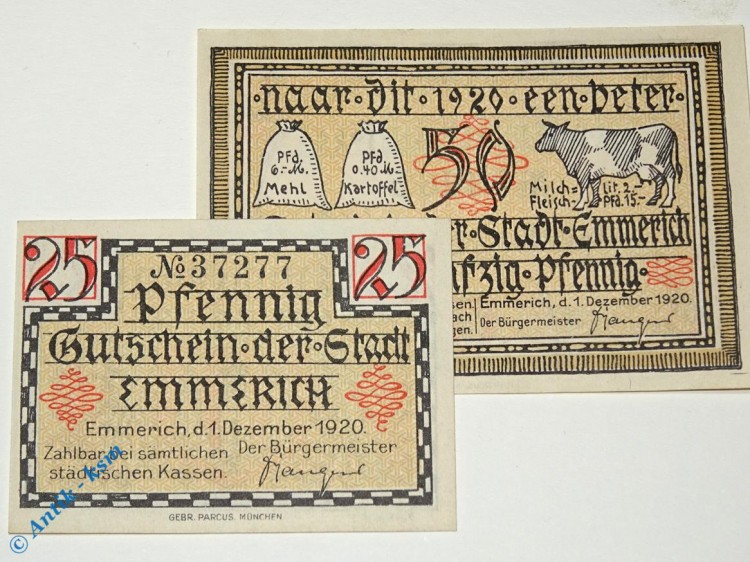 naar dit 1920 een beter
Pfd.
6.-M.
Mehl
Pfd.
0.40 M.
Kartoffel
50
Milch= Lit. 2.-
Fleisch= Pfd. 15.-
Stadt Emmerich
Pfennig
Emmerich, d. 1. Dezember 1920.
Der Bürgermeister
25 25
№ 37277
Pfennig
Gutschein der Stadt
EMMERICH
Emmerich, d. 1. Dezember 1920.
Zahlbar bei sämtlichen Der Bürgermeister
städtischen Kassen.
GEBR. PARCUS. MÜNCHEN
© Antik - ksin